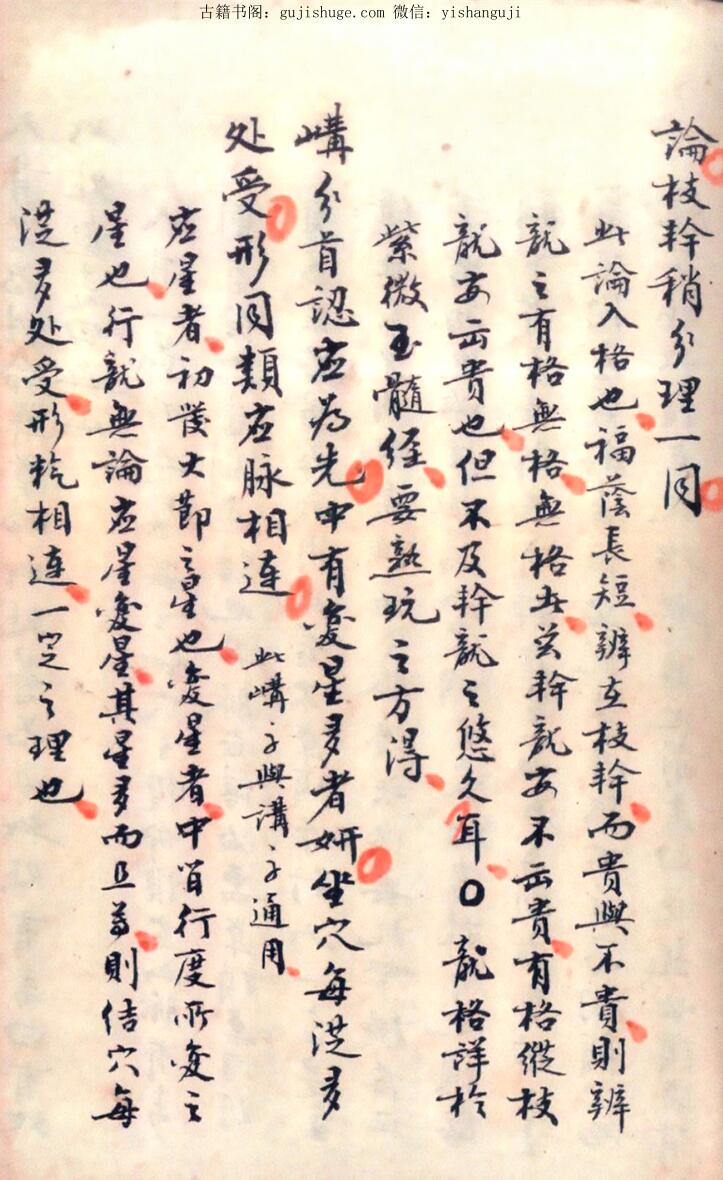 古籍书阁：gujishuge.com 微信：yishanguji
論枝幹稍分理一同
此論入格也福蔭長短辨在枝幹而貴與不貴則辨
龍之有格無格無格此等幹龍安不云貴有格縱枝
龍安云貴也但不及幹龍之悠久耳〇龍格詳於
紫微玉髓經要熟玩之方得
嶙分首認应為先中有变星多者妍坐穴每從多
处受形同類应脉相連 此嶙子與講子通用
应星者初發大節之星也变星者中间行度所变之
星也行龍無論应星变星其星多而且尊則结穴每
從多处受形乾相連一定之理也